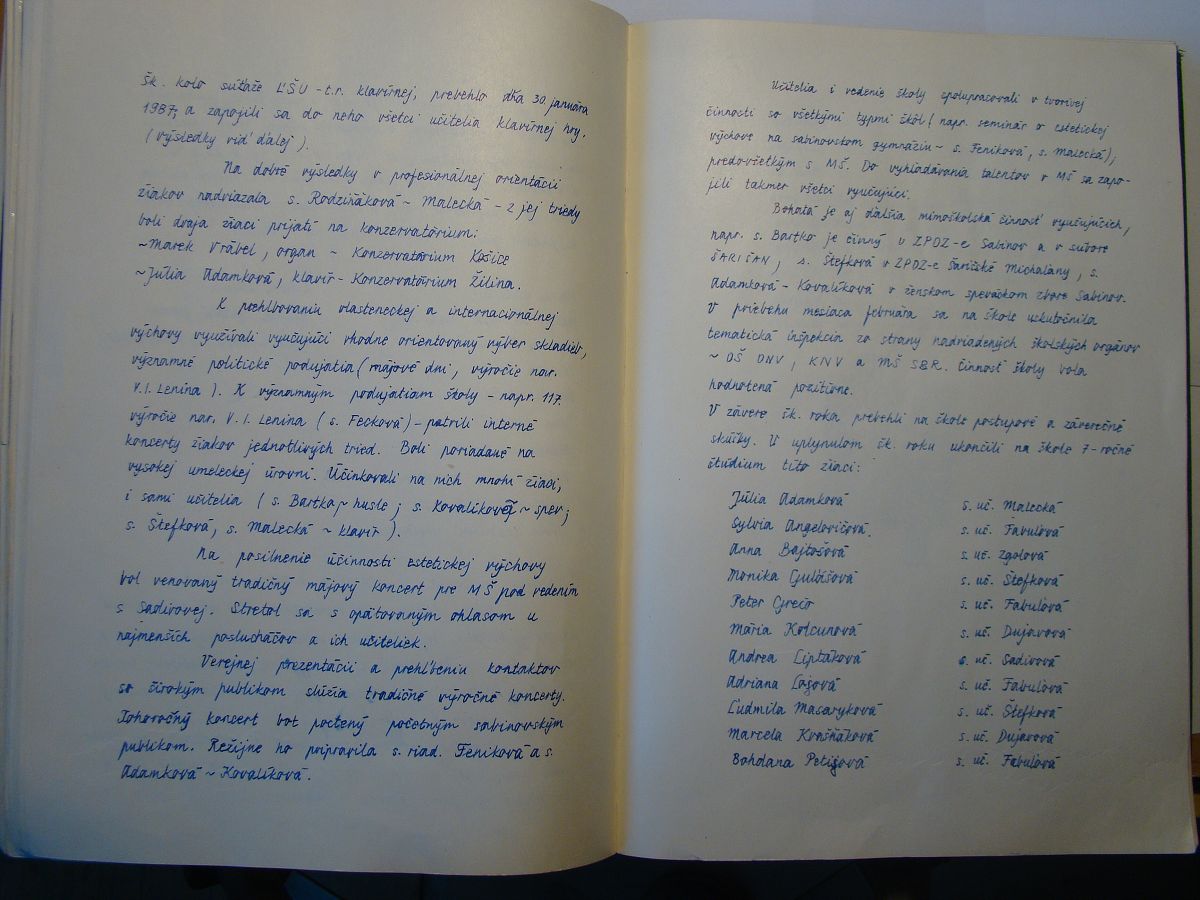 Šk. kolo súťaže ĽŠU - t.r. klavírnej, prebehlo dňa 30. januára
1987, a zapojili sa do neho všetci učitelia klavírnej hry.
(výsledky viď ďalej).
Na dobré výsledky v profesionálnej orientácii
žiakov nadviazala s. Rodziňáková ~ Malecká - z jej triedy
boli dvaja žiaci prijatí na konzervatórium:
~ Marek Vrábel, organ ~ Konzervatórium Košice
~ Júlia Adamková, klavír - Konzervatórium Žilina.
K prehlbovaniu vlasteneckej a internacionálnej
výchovy využívali vyučujúci vhodne orientovaný výber skladieb,
významné politické podujatia (májové dni, výročie nar.
V.I. Lenina). K významným podujatiam školy - napr. 117.
výročie nar. V.I. Lenina (s. Fecková) - patrili interné
koncerty žiakov jednotlivých tried. Boli poriadané na
vysokej umeleckej úrovni. Účinkovali na nich mnohí žiaci,
i sami učitelia (s. Bartko ~ husle; s. Kovalíková ~ spev;
s. Štefková, s. Malecká ~ klavír).
Na posilnenie účinnosti estetickej výchovy
bol venovaný tradičný májový koncert pre MŠ pod vedením
s. Sadivovej. Stretol sa s opätovaným ohlasom u
najmenších poslucháčov a ich učiteliek.
Verejnej prezentácii a prehĺbeniu kontaktov
so širokým publikom slúžia tradičné výročné koncerty.
Tohoročný koncert bol poctený početným sabinovským
publikom. Režijne ho pripravila s. riad. Feníková a s.
Adamková ~ Kovalíková.
Učitelia i vedenie školy spolupracovali v tvorivej
činnosti so všetkými typmi škôl (napr. seminár o estetickej
výchove na sabinovskom gymnáziu ~ s. Feníková, s. Malecká);
predovšetkým s MŠ. Do vyhľadávania talentov v MŠ sa zapo-
jili takmer všetci vyučujúci.
Bohatá je aj ďalšia mimoškolská činnosť vyučujúcich,
napr. s. Bartko je činný v ZPOZ-e Sabinov a v súbore
ŠARIŠAN, s. Štefková v ZPOZ-e Šarišské Michaľany, s.
Adamková - Kovalíková v ženskom speváckom zbore Sabinov.
V priebehu mesiaca februára sa na škole uskutočnila
tematická inšpekcia zo strany nadriadených školských orgánov
~ OŠ ONV, KNV a MŠ SSR. Činnosť školy bola
hodnotená pozitívne.
V závere šk. roka prebehli na škole postupové a záverečné
skúšky. V uplynulom šk. roku ukončili na škole 7-ročné
štúdium títo žiaci:
Júlia Adamková s. uč. Malecká
Sylvia Angelovičová s. uč. Fabuľová
Anna Bajtošová s. uč. Zgolová
Monika Gulášová s. uč. Štefková
Peter Grečo s. uč. Fabuľová
Mária Kolcunová s. uč. Dujavová
Andrea Liptáková s. uč. Sadivová
Adriana Lojová s. uč. Fabuľová
Ľudmila Masaryková s. uč. Štefková
Marcela Kvašňáková s. uč. Dujavová
Bohdana Petijová s. uč. Fabuľová